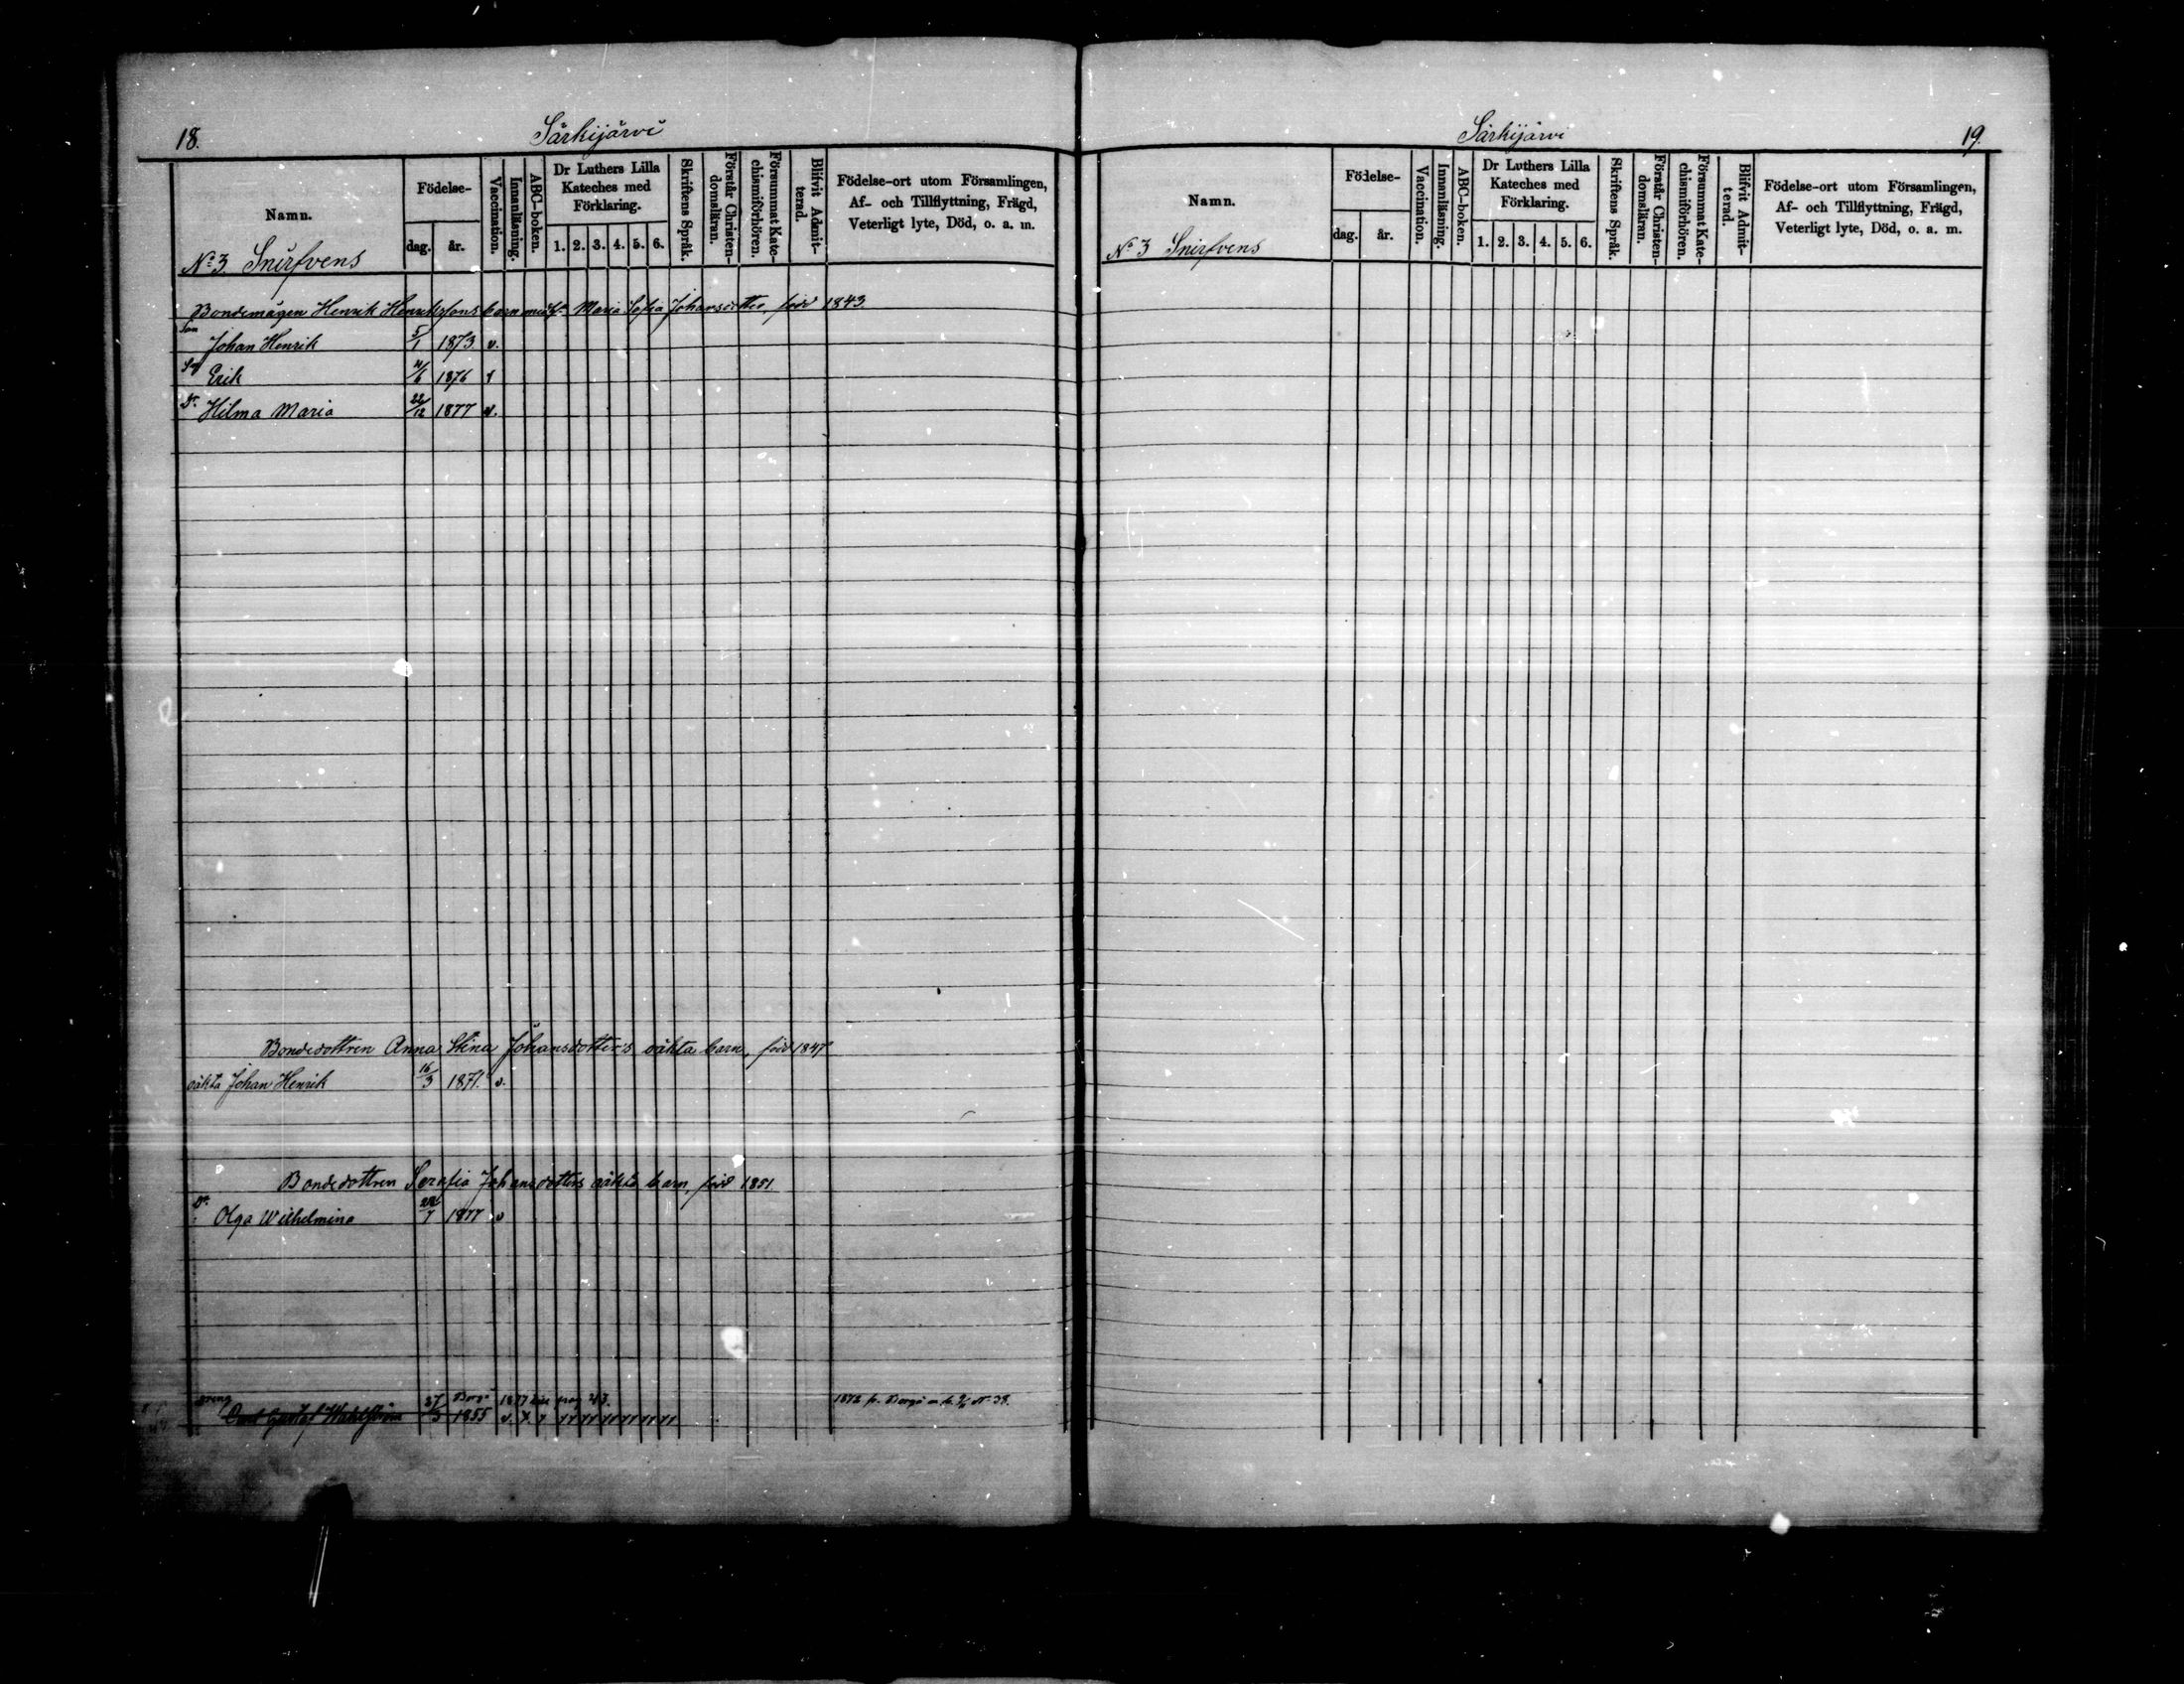 18.
Särkijärvi
Namn.
Födelse-
dag. år.
Vaccination.
Innanläsning.
ABC-boken.
Dr Luthers Lilla
Kateches med
Förklaring.
1. 2. 3. 4. 5. 6.
Skriftens Språk.
Förstår Christen-
domsläran.
Försummat Kate-
chismiförhören.
Blifvit Admit-
terad.
Födelse-ort utom Församlingen,
Af- och Tillflyttning, Frägd,
Veterligt lyte, Död, o. a. m.
No 3 Snirfvens
Bondemågen Henrik Henrikssons barn med Maria Sofia Johansdotter, född 1843.
Son
Johan Henrik 5/1 1873 v.
Erik 1876
Dr. Hilma Maria 22/12 1877 v.
Bondedottren Anna Stina Johansdotters oäkta barn, född 1847
oäkta Johan Henrik 16/3 1871. v.
Bondedottren Serafia Johansdotters oäkta barn, född 1851
Dr.
Olga Wilhelmina 1877 v
dreng Borgå 1877 pag 43. 1872 fr. Borgå N. 38.
Carl Gustaf Wahlström 27/3 1855 v.
Särkijärvi
19.
Namn.
Födelse-
dag. år.
Vaccination.
Innanläsning.
ABC-boken.
Dr Luthers Lilla
Kateches med
Förklaring.
1. 2. 3. 4. 5. 6.
Skriftens Språk.
Förstår Christen-
domsläran.
Försummat Kate-
chismiförhören.
Blifvit Admit-
terad.
Födelse-ort utom Församlingen,
Af- och Tillflyttning, Frägd,
Veterligt lyte, Död, o. a. m.
No 3 Snirfvens